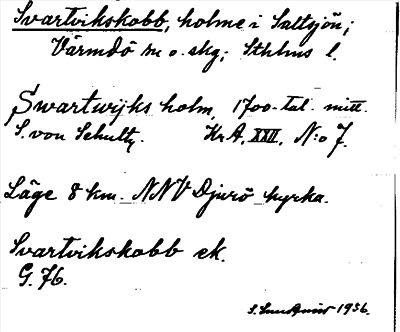 Svartvikskobb, holme i Saltsjön;
Värmdö sn o. skg; Sthlms l.
Swartwijks holm, 1700-tal. mitt.
S. von Schultz. Kr. A. XXII, N:o 7.
Läge 8 km. NNV Djurö kyrka.
Svartvikskobb ek.
G. 76.
1936.